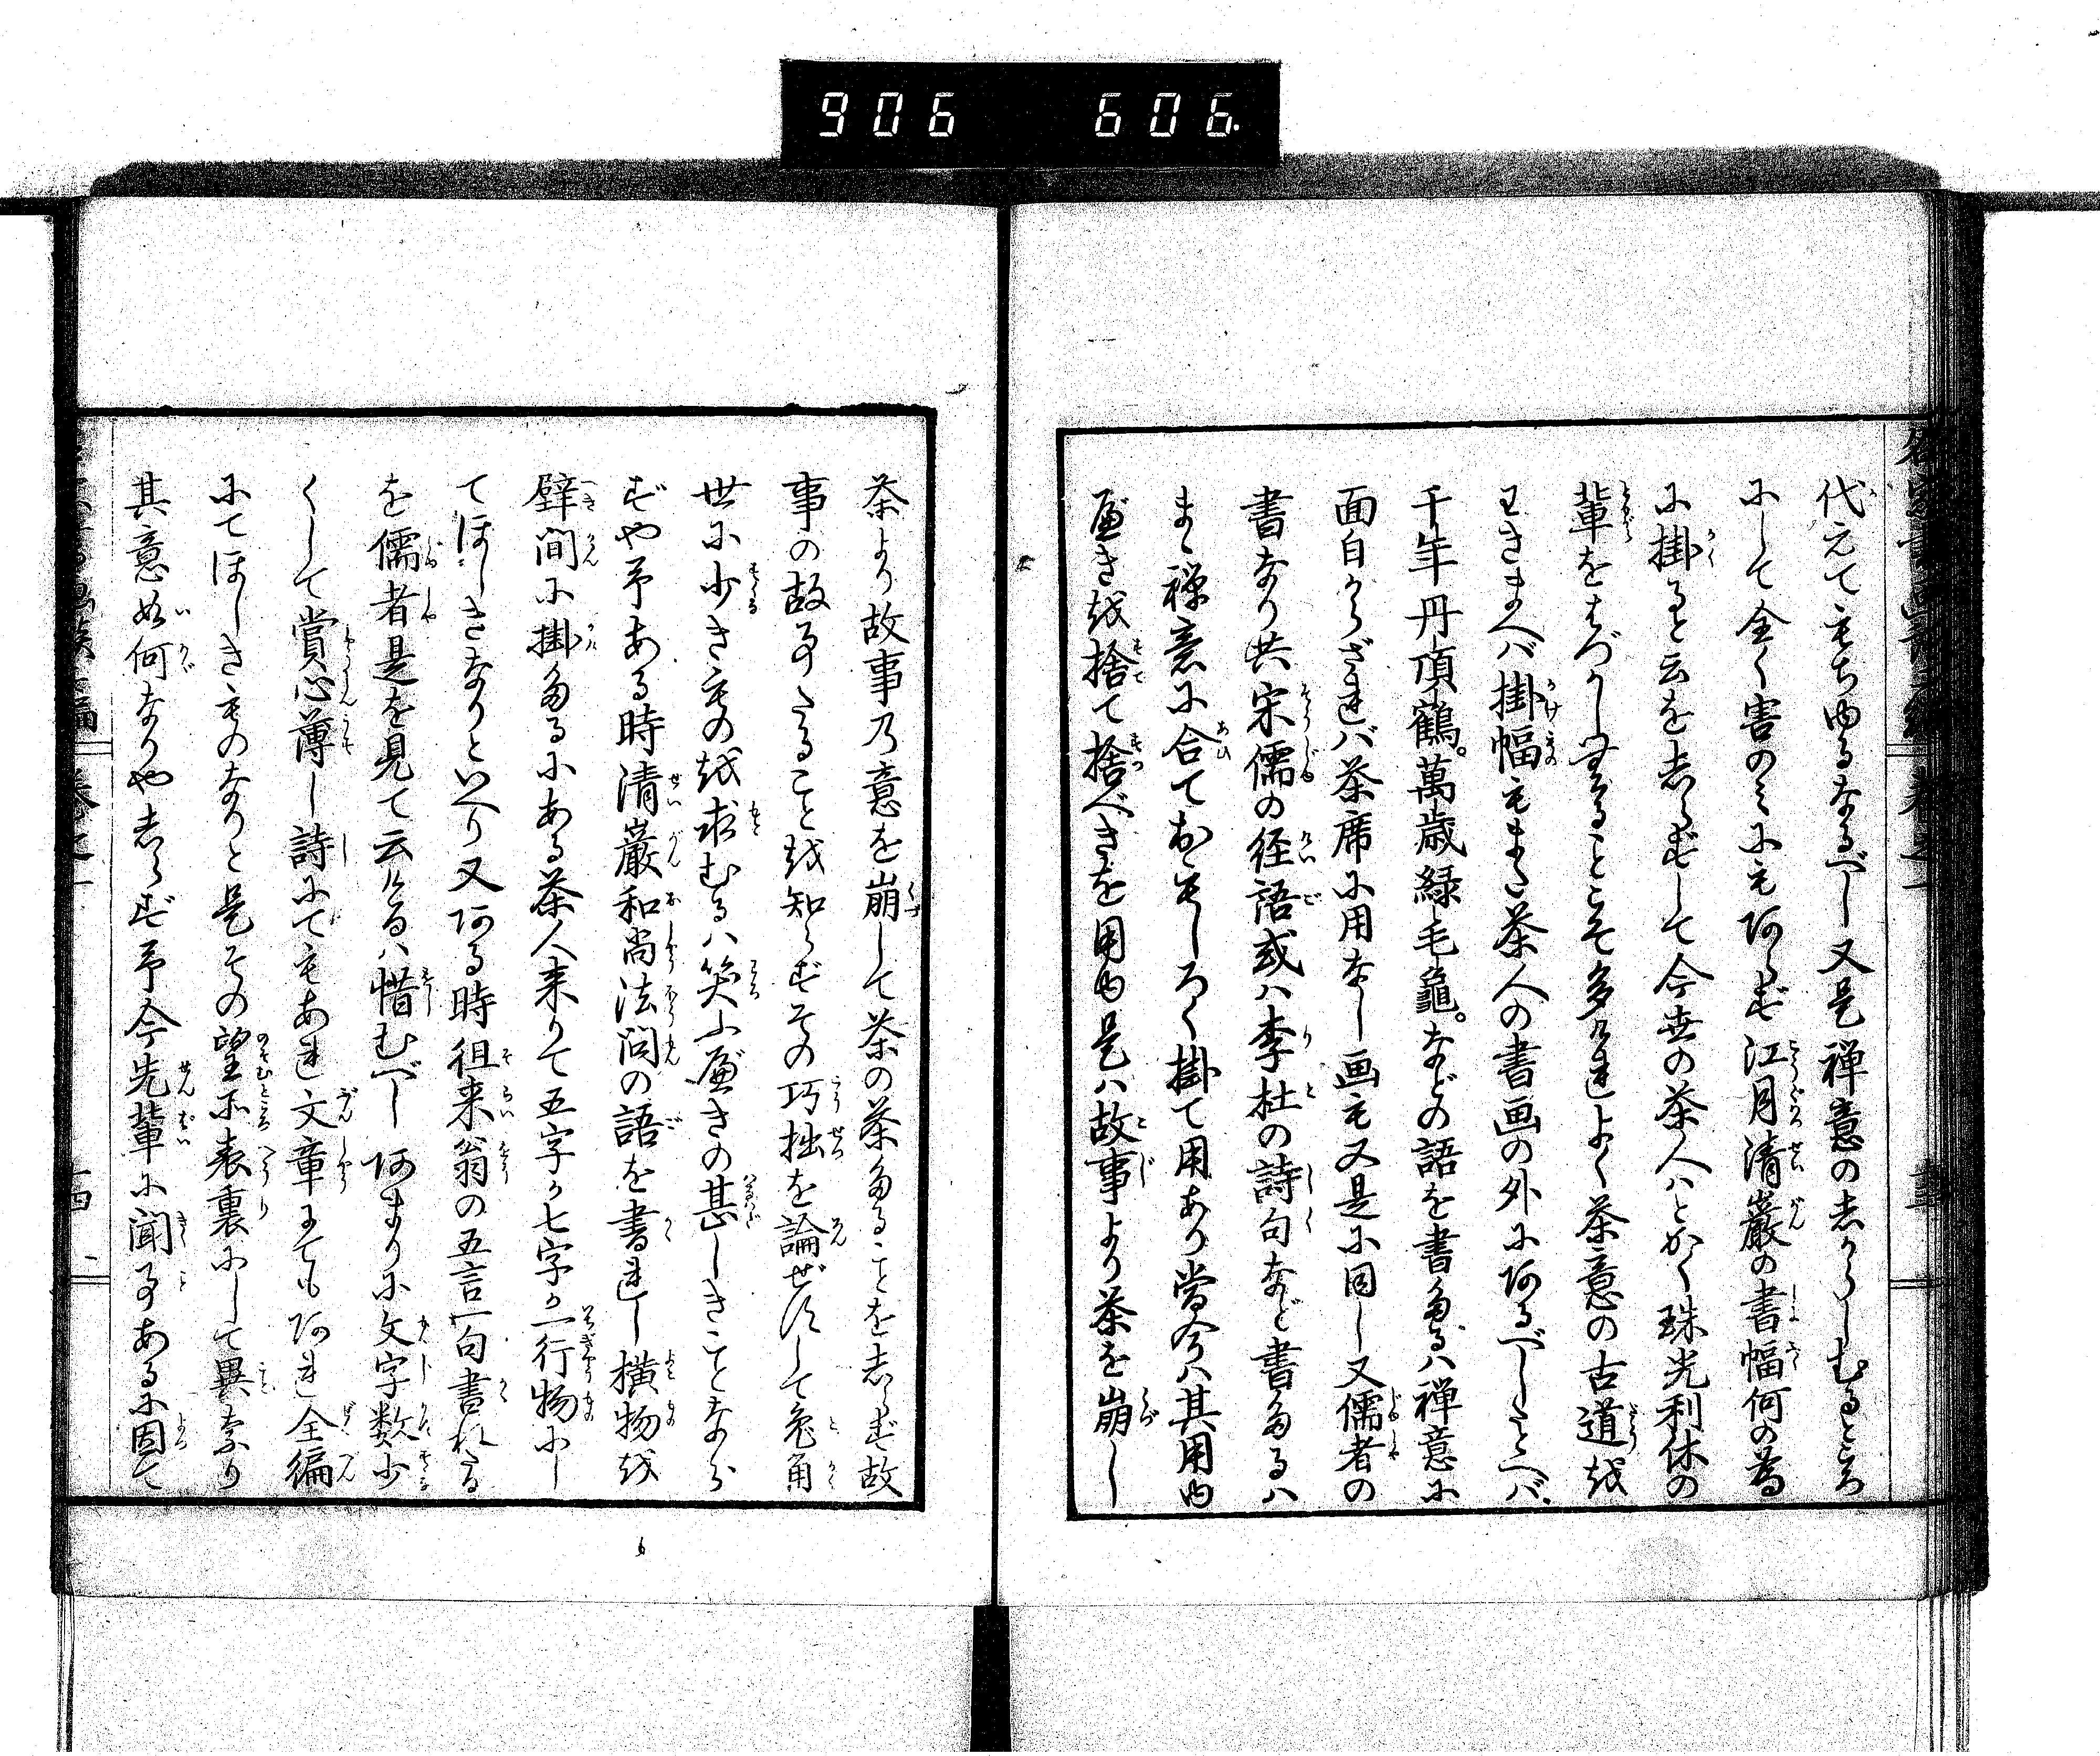 906 606.
代元てもち由るなるべし又是禅意のしからしむるところ
にして全く害のみにもあらず江月清巌の書幅何の為
に掛ると云をしらずして今世の茶人はとかく珠光利休の
輩をはづかしむることこそ多けれよく茶意の古道を
わきまへば掛幅もまた茶人の書画の外にあるべしたとへば
千年丹頂鶴。萬歳緑毛龜。などの語を書たるは禅意に
面白からざれば茶席に用なし画も又是に同し又儒者の
書なり共宋儒の径語或は李杜の詩句など書たるは
まゝ禅意に合ておもしろく掛て用あり當今は其用由
べきを捨て捨べきを用由是は故事より茶を崩し
茶より故事乃意を崩して茶の茶たることをしらず故
事の故事たることを知らずその巧拙を論ぜずして兎角
世に少きものを求むるは笑ふべきの甚しきことなら
ずや予ある時清巌和尚法問の語を書れし横物を
壁間に掛たるにある茶人来りて五字か七字か一行物にし
てほしきなりといへり又ある時徂来翁の五言一句書れたる
を儒者是を見て云けるは惜むべしあまりに文字数少
くして賞心薄し詩にてもあれ文章にてもあれ全編
にてほしきものなりと是その望所表裏にして異なり
其意如何なりやしらず予今先輩に聞事あるに因て